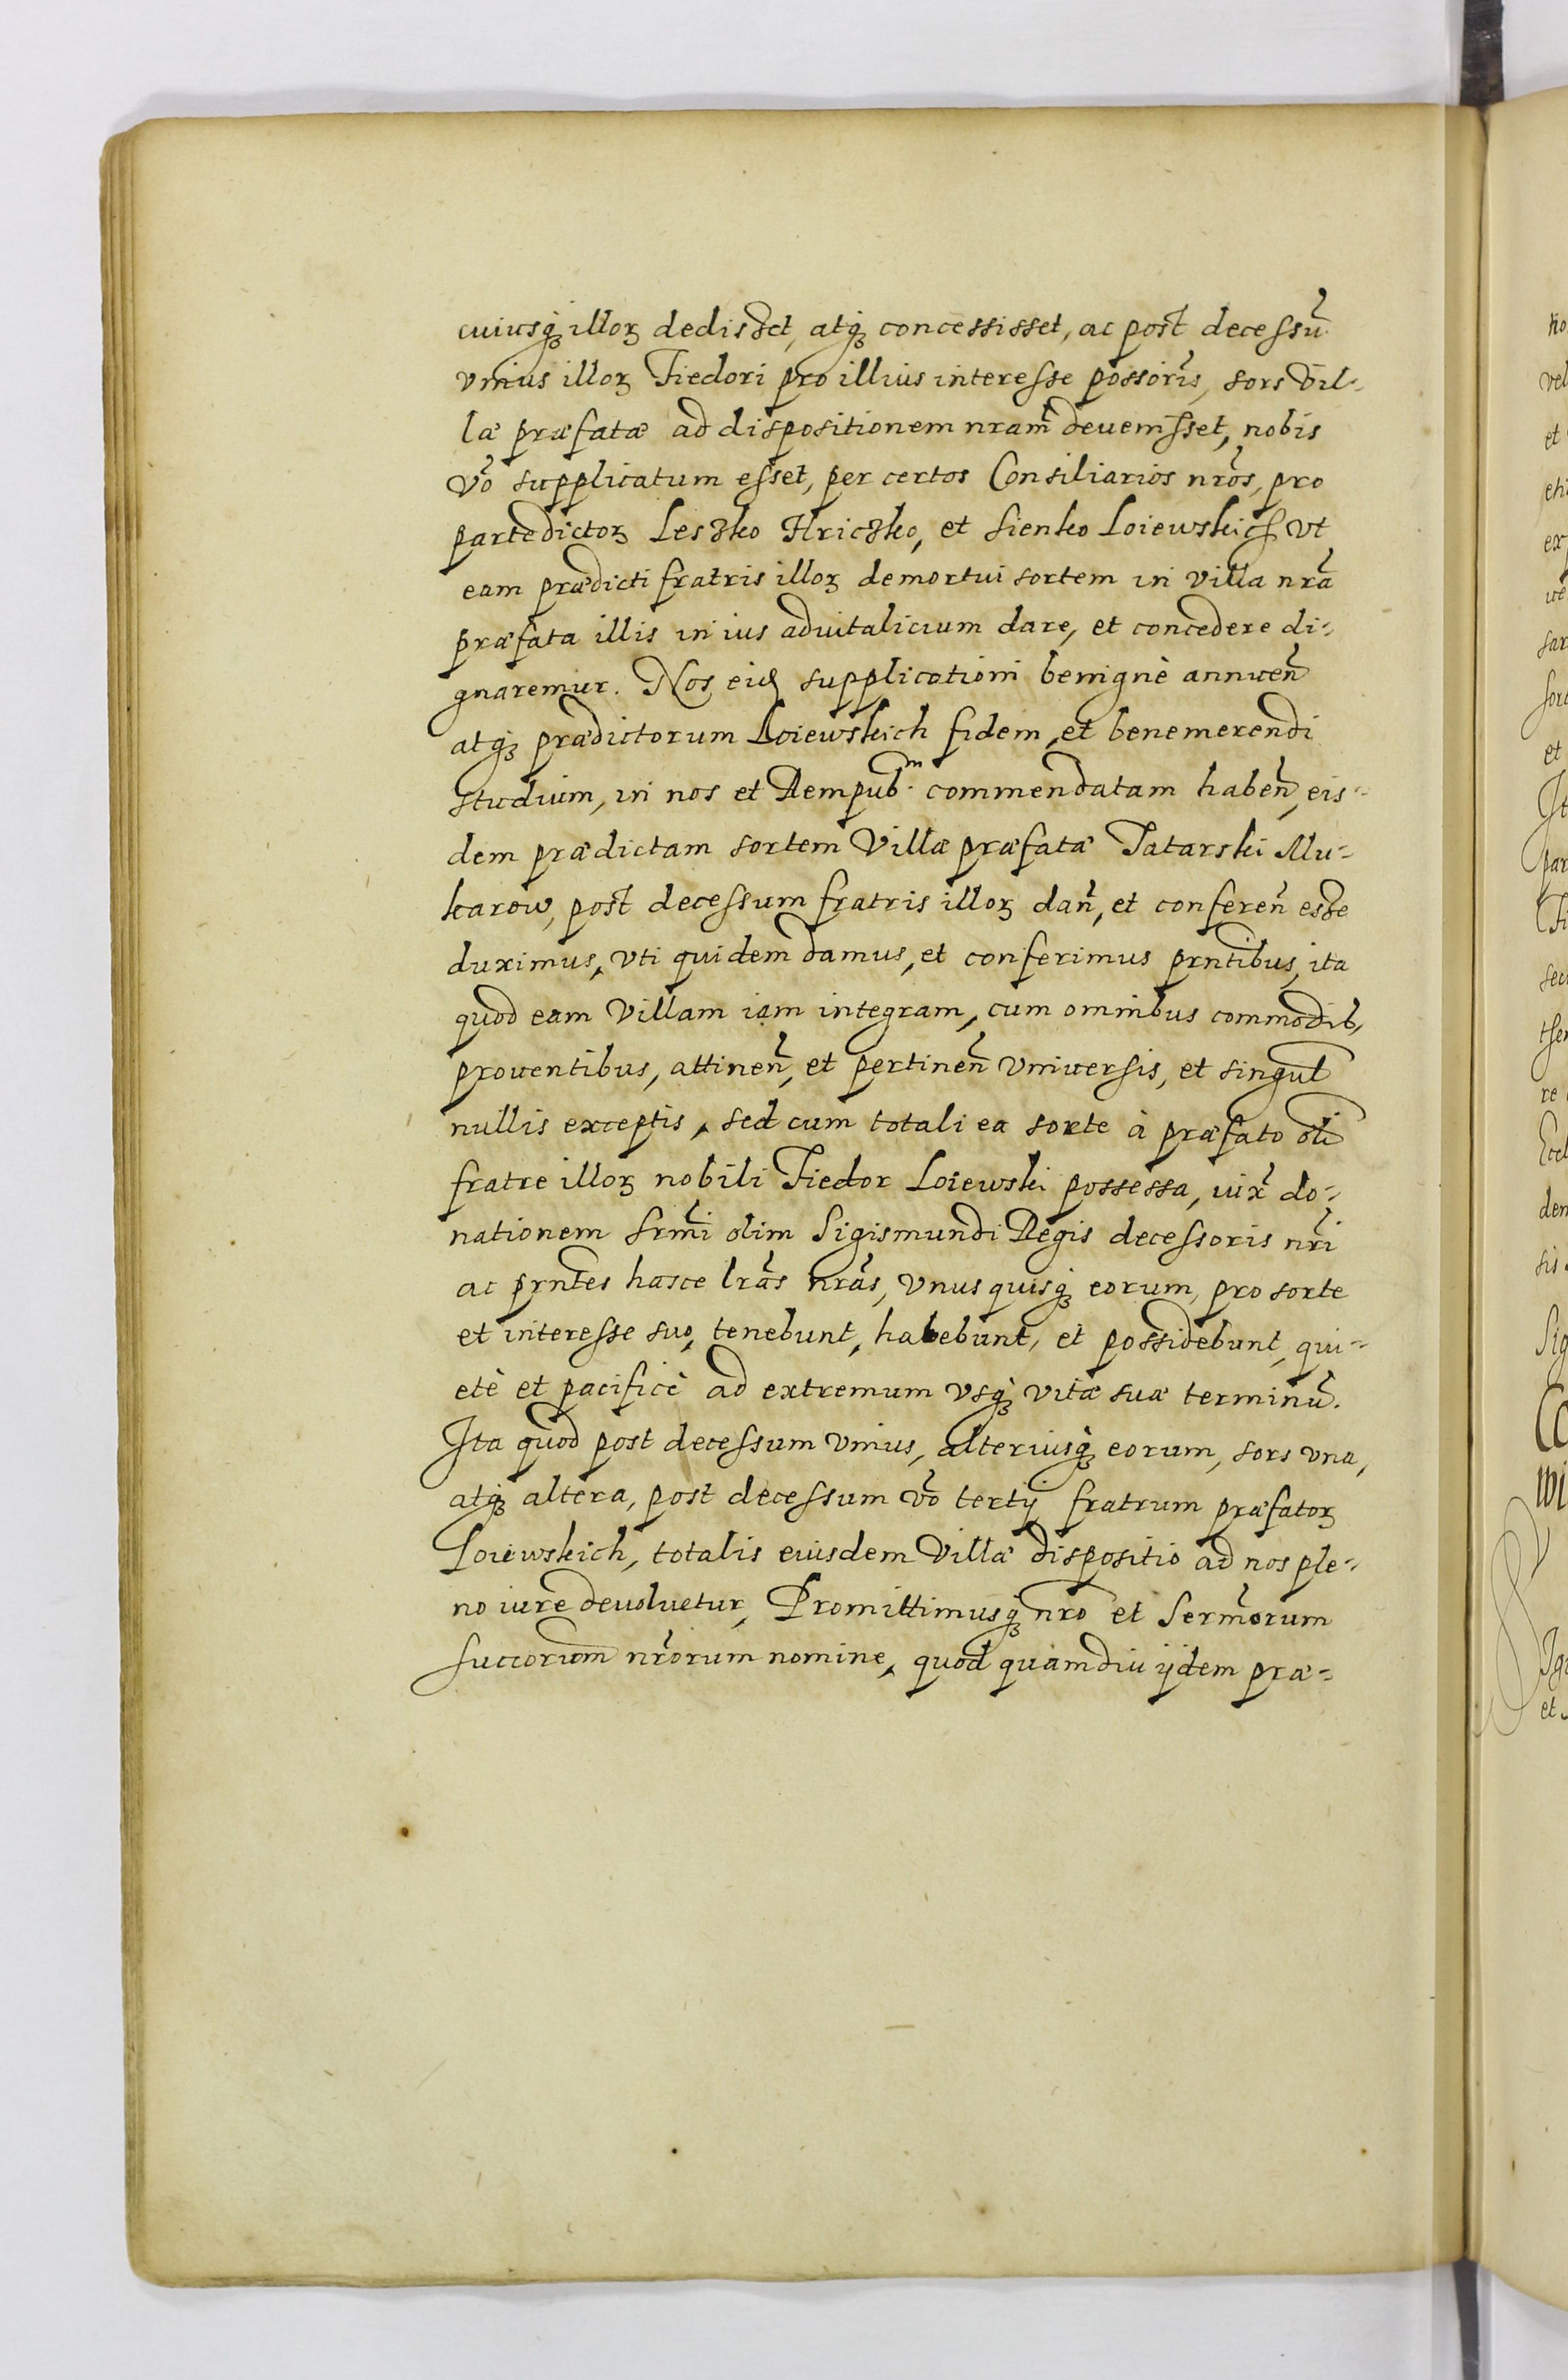 cuiusq́ꝫ illoꝝ dedisset, atq́ꝫ concessisset, ac post decessũ
vnius illoꝝ Fiedori pro illius interesse possoris̃, sors Vil-
læ præfatæ ad dispositionem nram̃ deuenisset, nobis
võ supplicatum esset, per certos Consiliarios nrõs, pro
parte dictoꝝ Leszko Hriczko, et Sienko Loiewskich vt
eam prædicti fratris illoꝝ demortui sortem in villa nrã
præfata illis in ius aduitalicium dare, et concedere di-
gnaremur. Nos eid supplicationi benignè annuen̄
atq́ꝫ prædictorum Loiewskich fidem, et benemerendi
studium, in nos et Rempub.m commendatam haben̄, eis-
dem prædictam sortem Villæ præfatæ Tatarski Mu-
karow, post decessum fratris illoꝝ dan̄, et conferen̄ esse
duximus, vti quidem damus, et conferimus prñtibus, ita
quod eam Villam iam integram, cum omnibus commodib,
prouentibus, attinen̄, et pertinen̄ vniuersis, et singul
nullis exceptis, sed cum totali ea sorte à præfato oli
fratre illoꝝ nobili Fiedor Loiewski possessa, iux̃ do-
nationem Srm̃i olim Sigismundi Regis decessoris nrĩ
ac prñtes hasce lrãs nrãs, vnus quisq́ꝫ eorum, pro sorte
et interesse suo, tenebunt, habebunt, et possidebunt, qui-
etè et pacificè ad extremum vsq́ꝫ vitæ suæ terminũ.
Ita quod post decessum vnius, alteriusq́ꝫ eorum, sors vna,
atq́ꝫ altera, post decessum võ tertij fratrum præfatoꝝ
Loiewskich, totalis eiusdem Villæ dispositio ad nos ple-
no iure deuoluetur, Promittimusq́ꝫ nrõ et Serm̃orum
succorum nrõrum nomine, quod quamdiu ijdem præ-